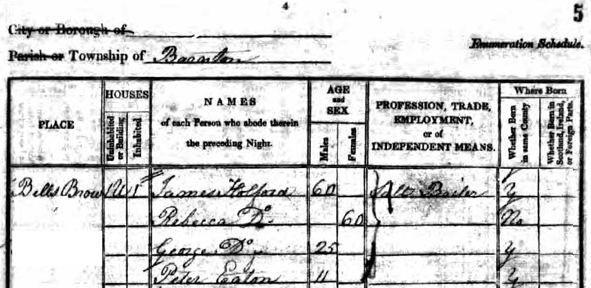 4
5
City or Borough of
Parish or Township of Barnton
Enumeration Schedule.
PLACE
HOUSES
Uninhabited or Building
Inhabited
NAMES
of each Person who abode therein
the preceding Night.
AGE
and
SEX
Males
Females
PROFESSION, TRADE,
EMPLOYMENT,
or of
INDEPENDENT MEANS.
Where Born
Whether Born in same County
Whether Born in Scotland, Ireland, or Foreign Parts.
Bells Brow 1U 1 James Holford 60 Salt Boiler y
Rebecca Do 60 No
George Do 25 y
Peter Eaton 11 y